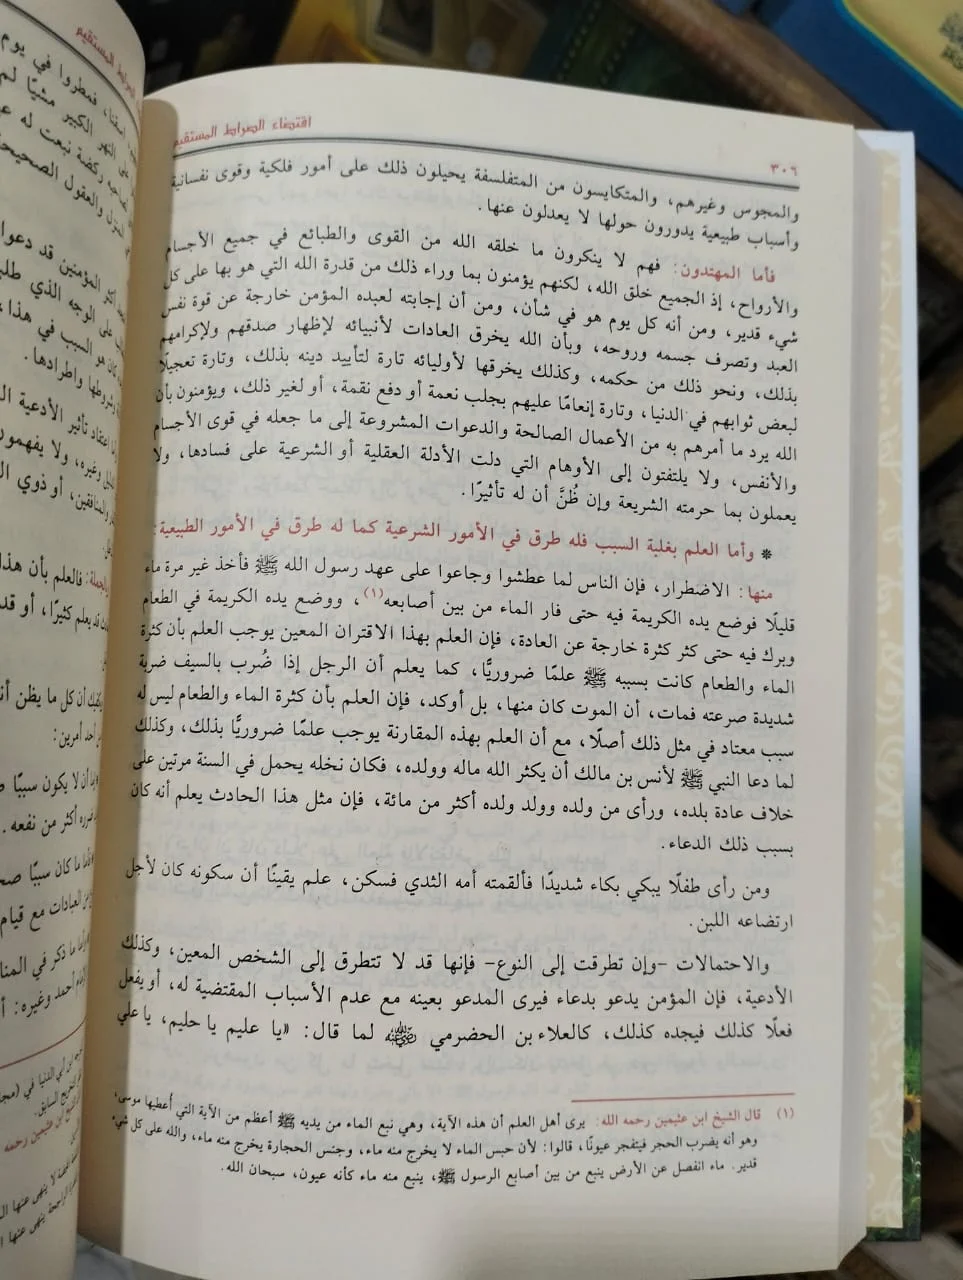 اقتضاء الصراط المستقيم
٣٠٦
والمجوس وغيرهم، والمتكايسون من المتفلسفة يحيلون ذلك على أمور فلكية وقوى نفسانية
وأسباب طبيعية يدورون حولها لا يعدلون عنها.
فأما المهتدون: فهم لا ينكرون ما خلقه الله من القوى والطبائع في جميع الأجسام
والأرواح، إذ الجميع خلق الله، لكنهم يؤمنون بما وراء ذلك من قدرة الله التي هو بها على كل
شيء قدير، ومن أنه كل يوم هو في شأن، ومن أن إجابته لعبده المؤمن خارجة عن قوة نفس
العبد وتصرف جسمه وروحه، وبأن الله يخرق العادات لأنبيائه لإظهار صدقهم ولإكرامهم
بذلك، ونحو ذلك من حكمه، وكذلك يخرقها لأوليائه تارة لتأييد دينه بذلك، وتارة تعجيلًا
لبعض ثوابهم في الدنيا، وتارة إنعامًا عليهم بجلب نعمة أو دفع نقمة، أو لغير ذلك، ويؤمنون بأن
الله يرد ما أمرهم به من الأعمال الصالحة والدعوات المشروعة إلى ما جعله في قوى الأجسام
والأنفس، ولا يلتفتون إلى الأوهام التي دلت الأدلة العقلية أو الشرعية على فسادها، ولا
يعملون بما حرمته الشريعة وإن ظُنَّ أن له تأثيرًا.
* وأما العلم بغلبة السبب فله طرق في الأمور الشرعية كما له طرق في الأمور الطبيعية:
منها: الاضطرار، فإن الناس لما عطشوا وجاعوا على عهد رسول الله ﷺ فأخذ غير مرة ماء
قليلًا فوضع يده الكريمة فيه حتى فار الماء من بين أصابعه(١)، ووضع يده الكريمة في الطعام
وبرك فيه حتى كثر كثرة خارجة عن العادة، فإن العلم بهذا الاقتران المعين يوجب العلم بأن كثرة
الماء والطعام كانت بسببه ﷺ علمًا ضروريًّا، كما يعلم أن الرجل إذا ضُرب بالسيف ضربة
شديدة صرعته فمات، أن الموت كان منها، بل أوكد، فإن العلم بأن كثرة الماء والطعام ليس له
سبب معتاد في مثل ذلك أصلًا، مع أن العلم بهذه المقارنة يوجب علمًا ضروريًّا بذلك، وكذلك
لما دعا النبي ﷺ لأنس بن مالك أن يكثر الله ماله وولده، فكان نخله يحمل في السنة مرتين على
خلاف عادة بلده، ورأى من ولده وولد ولده أكثر من مائة، فإن مثل هذا الحادث يعلم أنه كان
بسبب ذلك الدعاء.
ومن رأى طفلًا يبكي بكاء شديدًا فألقمته أمه الثدي فسكن، علم يقينًا أن سكونه كان لأجل
ارتضاعه اللبن.
والاحتمالات -وإن تطرقت إلى النوع- فإنها قد لا تتطرق إلى الشخص المعين، وكذلك
الأدعية، فإن المؤمن يدعو بدعاء فيرى المدعو بعينه مع عدم الأسباب المقتضية له، أو يفعل
فعلًا كذلك فيجده كذلك، كالعلاء بن الحضرمي رضي الله عنه لما قال: «يا عليم يا حليم، يا علي
(١) قال الشيخ ابن عثيمين رحمه الله: يرى أهل العلم أن هذه الآية، وهي نبع الماء من يديه ﷺ أعظم من الآية التي أُعطيها موسى،
وهو أنه يضرب الحجر فيتفجر عيونًا، قالوا: لأن حبس الماء لا يخرج منه ماء، وجنس الحجارة يخرج منه ماء، والله على كل شيء
قدير. ماء انفصل عن الأرض ينبع من بين أصابع الرسول ﷺ، ينبع منه ماء كأنه عيون، سبحان الله.